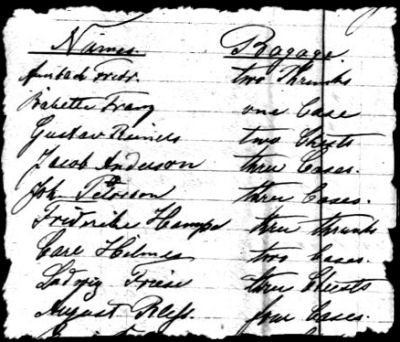 Names. Bagage.
Fredr. two Thrunks
Babette Franz one Case
Gustav Reiners two Chests
Jacob Anderson three Cases.
Joh. Peterson three Cases.
Frederike Hampe three thrunks
Carl Helmes two Cases.
Ludwig Friese three Chests
August Bless. four Cases.